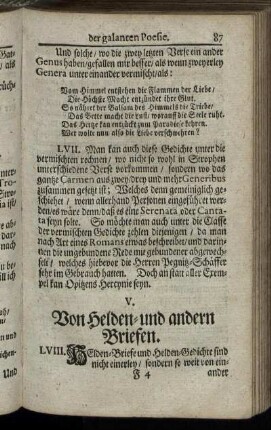 der galanten Poesie. 87
Und solche / wo die zwey letzten Verse ein ander
Genus haben / gefallen mir besser / als wenn zweyerley
Genera unter einander vermischt / als:
Vom Himmel entstehen die Flammen der Liebe /
Die Höchste Macht entzündet ihre Glut.
So nähret der Balsam des Himmels die Triebe /
Das Bette macht die voll / worauf die Seele ruht.
Das Hertze kan entzückt zum Paradies kehren.
Wer wolte nun also die Liebe verschwehren?
LVII. Man kan auch diese Gedichte unter die
vermischten rechnen / wo nicht so wohl in Strophen
unterschiedene Verse vorkommen / sondern wo das
gantze Carmen aus zwey / drey und mehr Generibus
zusammen gesetzt ist; Welches denn gemeiniglich ge-
schiehet / wenn allerhand Personen eingeführet wer-
den: wenn / daß es eine Serenata oder Canta-
ta seyn solte. So möchte man auch unter die Classe
der vermischten Gedichte zehlen diejenigen / da man
nach Art eines Romans etwas beschreibet / und darin-
nen die ungebundene Rede mit gebundener abwech-
selt / welches hiebevor die Herren Pegnitz-Schäffer
sehr im Gebrauch hatten. Doch an statt aller Exem-
pel kan Opitzens Hercynie seyn.
V.
Von Helden- und andern
Briefen.
LVIII. HElden-Briefe und Helden-Gedichte sind
nicht einerley / sondern so weit von ein-
F 4 ander